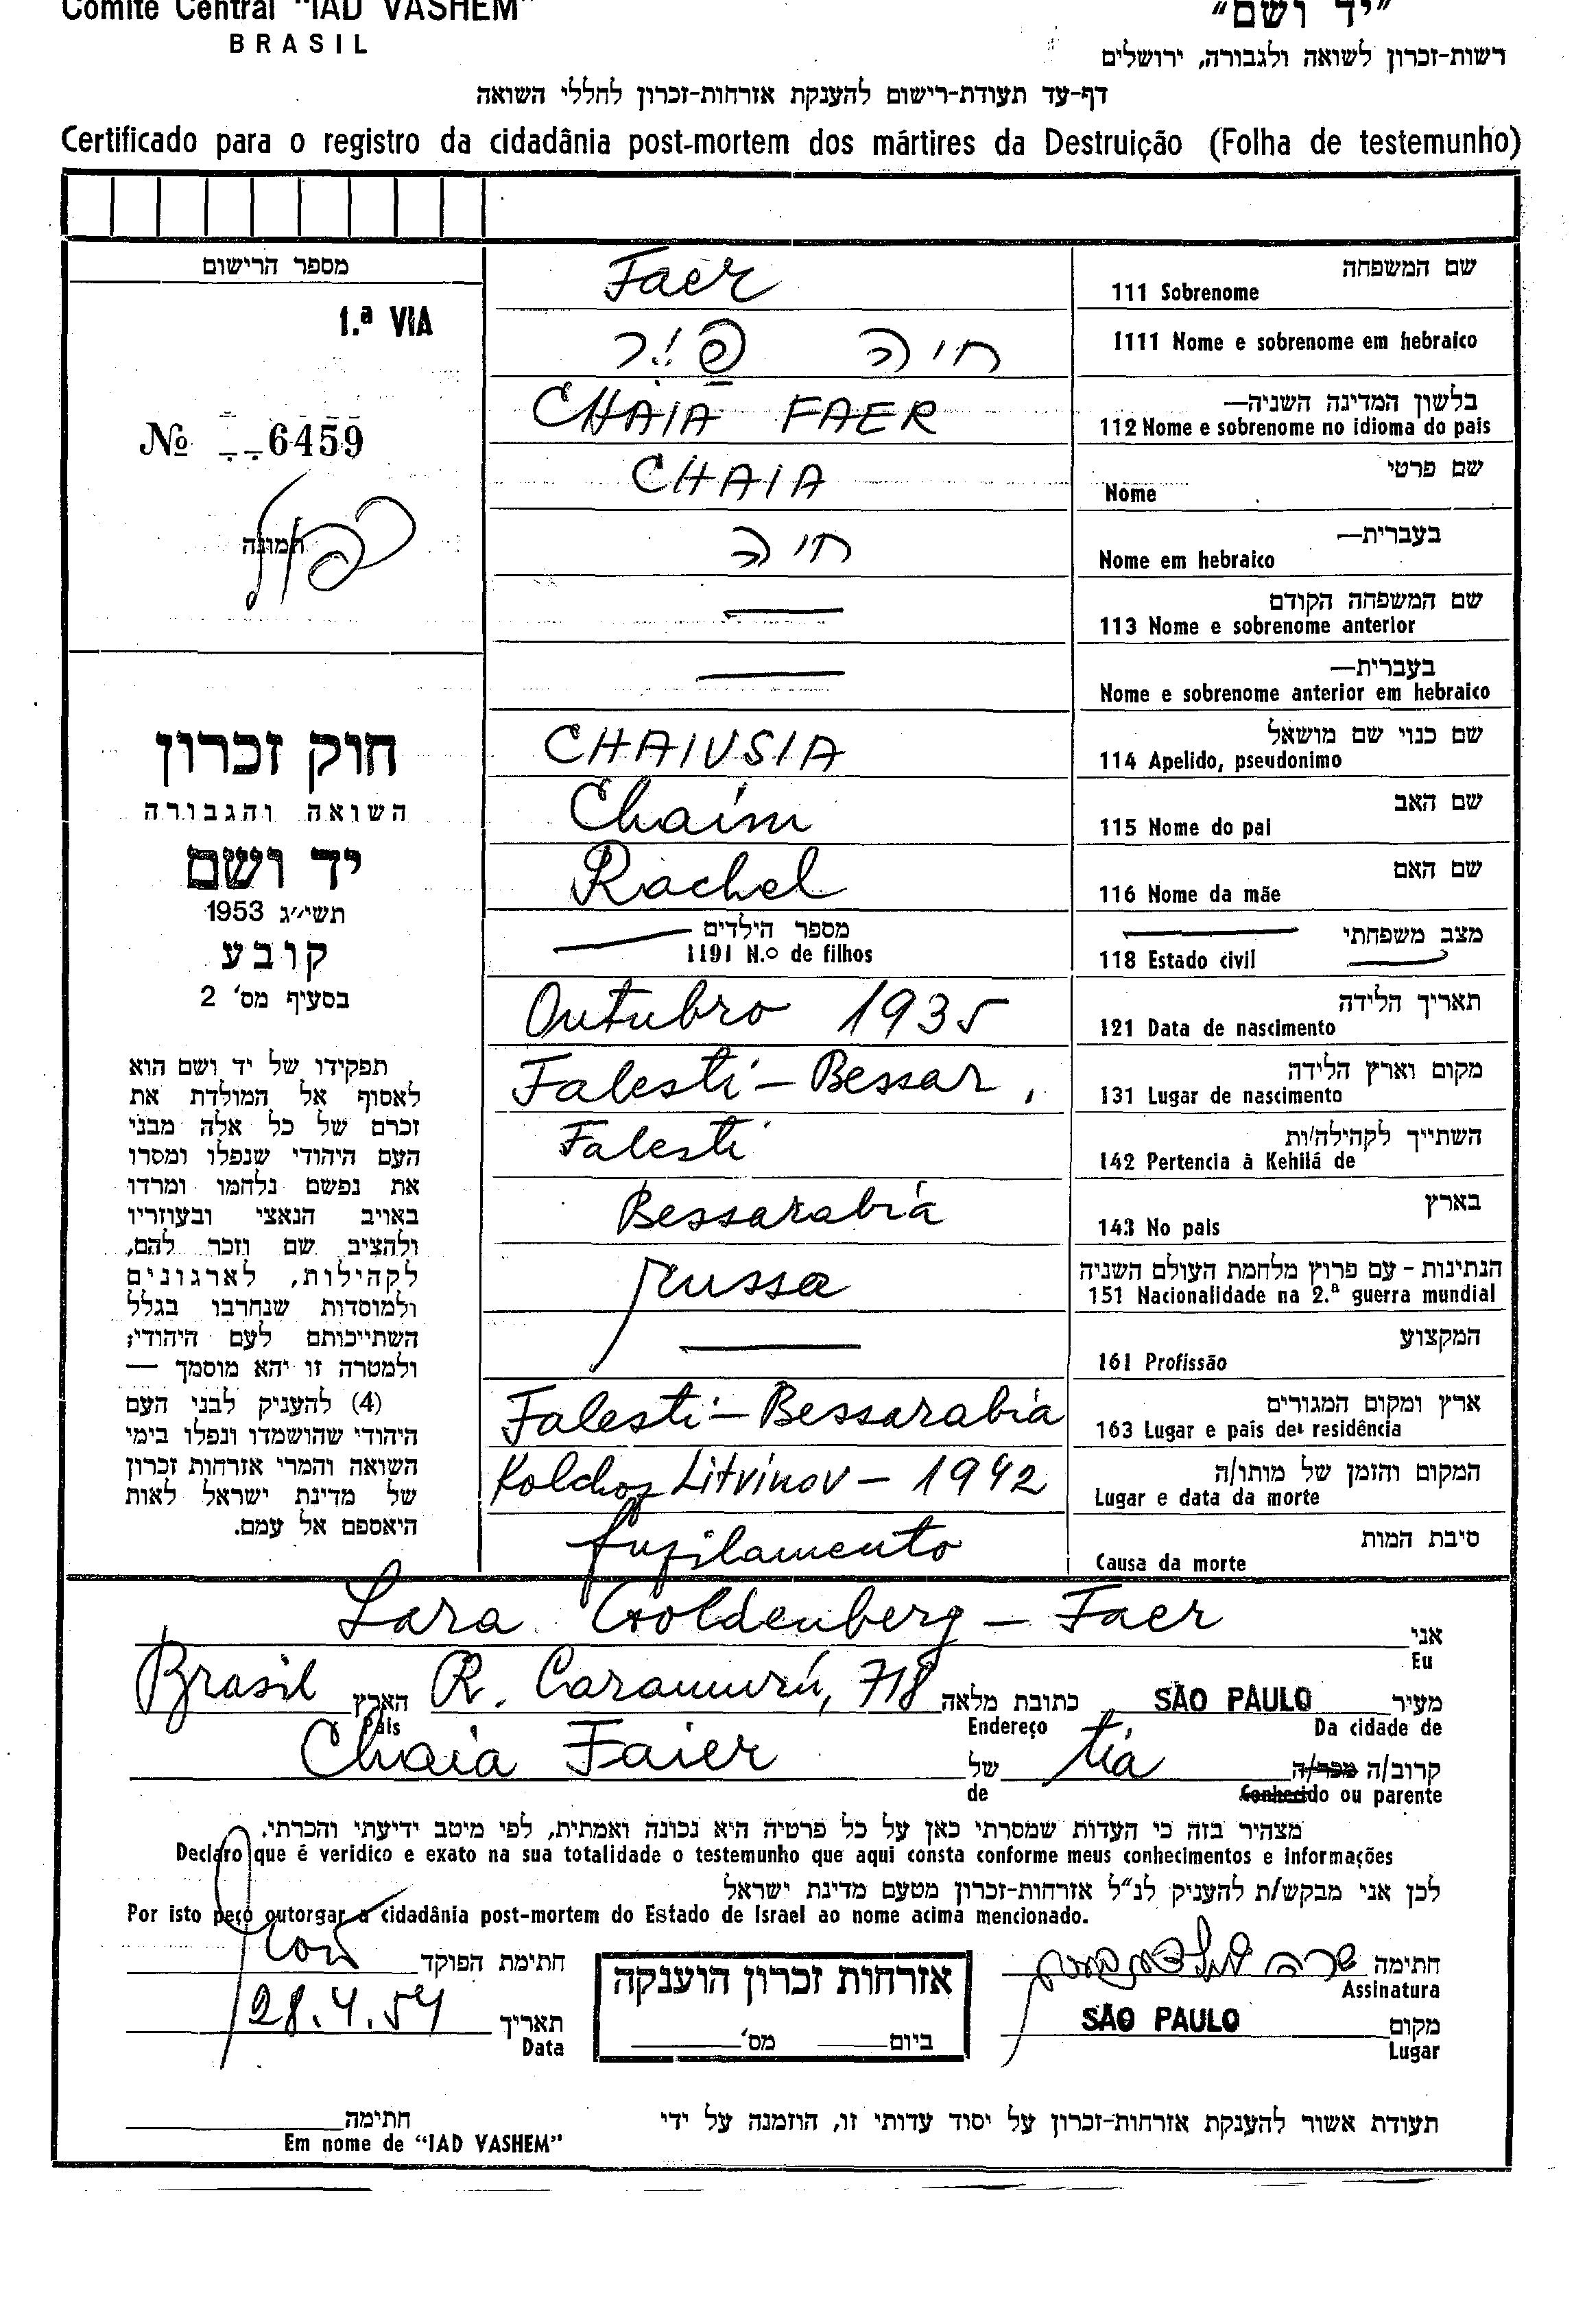 Comité Central "IAD VASHEM"
BRASIL
"יד ושם"
רשות-זכרון לשואה ולגבורה, ירושלים
דף-עד תעודת-רישום להענקת אזרחות-זכרון לחללי השואה
Certificado para o registro da cidadânia post-mortem dos mártires da Destruição (Folha de testemunho)
מספר הרישום
1.ª VIA
№ 6459
תמונה
חוק זכרון
השואה והגבורה
יד ושם
תשי"ג 1953
קובע
בסעיף מס' 2
תפקידו של יד ושם הוא
לאסוף אל המולדת את
זכרם של כל אלה מבני
העם היהודי שנפלו ומסרו
את נפשם נלחמו ומרדו
באויב הנאצי ובעוזריו
ולהציב שם וזכר להם,
לקהילות, לארגונים
ולמוסדות שנחרבו בגלל
השתייכותם לעם היהודי;
ולמטרה זו יהא מוסמך —
(4) להעניק לבני העם
היהודי שהושמדו ונפלו בימי
השואה והמרי אזרחות זכרון
של מדינת ישראל לאות
היאספם אל עמם.
שם המשפחה
111 Sobrenome Faer
1111 Nome e sobrenome em hebraico חיה פייר
בלשון המדינה השניה—
112 Nome e sobrenome no idioma do país CHAIA FAER
שם פרטי
Nome CHAIA
בעברית—
Nome em hebraico חיה
שם המשפחה הקודם
113 Nome e sobrenome anterior —
בעברית—
Nome e sobrenome anterior em hebraico —
שם כנוי שם מושאל
114 Apelido, pseudonimo CHAIUSIA
שם האב
115 Nome do pai Chaim
שם האם
116 Nome da mãe Rachel
מצב משפחתי —
118 Estado civil
מספר הילדים —
1191 N.º de filhos
תאריך הלידה
121 Data de nascimento Outubro 1935
מקום וארץ הלידה
131 Lugar de nascimento Falesti - Bessar.
השתייך לקהילה/ות
142 Pertencia à Kehilá de Falesti
בארץ
143 No país Bessarabia
הנתינות - עם פרוץ מלחמת העולם השניה
151 Nacionalidade na 2.ª guerra mundial russa
המקצוע
161 Profissão —
ארץ ומקום המגורים
163 Lugar e país de residência Falesti - Bessarabia
המקום והזמן של מותו/ה
Lugar e data da morte Kolchoz Litvinov - 1942
סיבת המות
Causa da morte fuzilamento
אני Sara Goldenberg - Faer
Eu
מעיר SÃO PAULO כתובת מלאה R. Caramurú, 718 הארץ Brasil
Da cidade de Endereço País
קרוב/ה מכר/ה tia של Chaia Faier
Conhecido ou parente de
מצהיר בזה כי העדות שמסרתי כאן על כל פרטיה היא נכונה ואמתית, לפי מיטב ידיעתי והכרתי.
Declaro que é veridico e exato na sua totalidade o testemunho que aqui consta conforme meus conhecimentos e informações
לכן אני מבקש/ת להעניק לנ"ל אזרחות-זכרון מטעם מדינת ישראל
Por isto peço outorgar a cidadânia post-mortem do Estado de Israel ao nome acima mencionado.
חתימה שרה
Assinatura
אזרחות זכרון הוענקה
ביום מס'
חתימת הפוקד
מקום SÃO PAULO
Lugar
תאריך 28.4.54
Data
תעודת אשור להענקת אזרחות-זכרון על יסוד עדותי זו, הוזמנה על ידי
חתימה
Em nome de "IAD VASHEM"